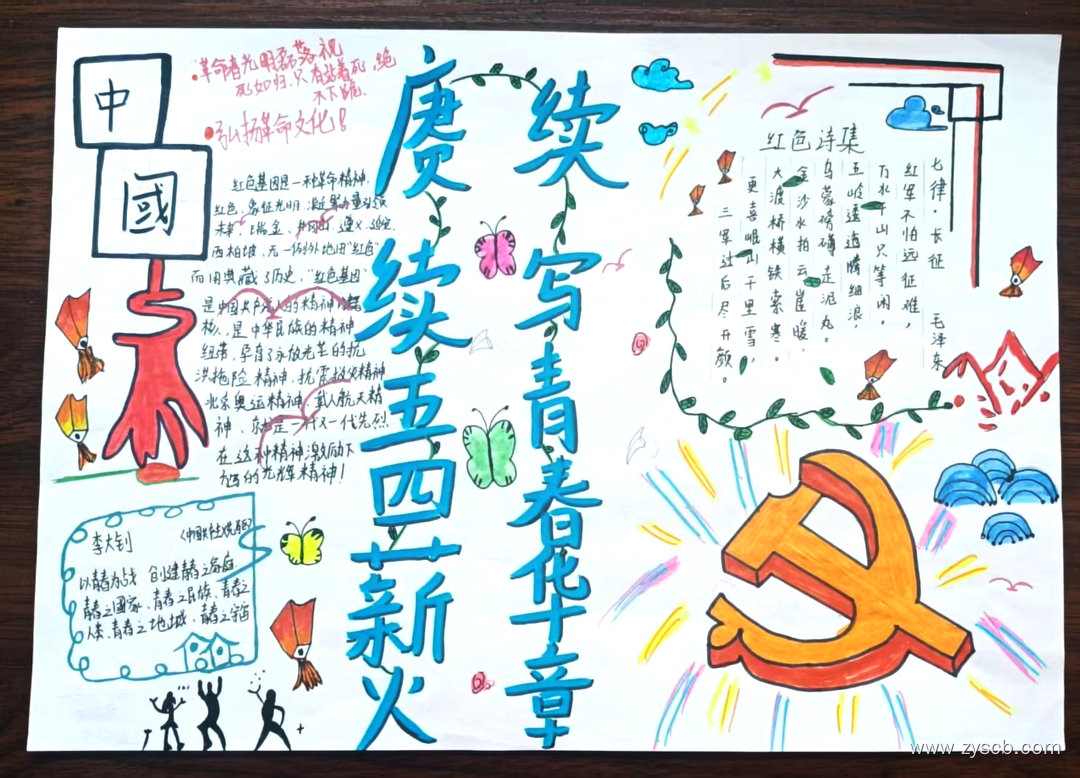 中
國
·"革命者光明磊落视
死如归,只有站着死,绝
不下跪.
·弘扬革命文化!
红色基因是一种革命精神.
红色,象征光明,凝聚力量引领
未来.瑞金、井冈山、遵义、延安、
西柏坡,无一例外地用"红色"
而用典藏了历史,"红色基因"
是中国共产党人的精神内核
核,是中华民族的精神
纽带,孕育了永放光芒的抗
洪抢险精神,抗震救灾精神
北京奥运精神,载人航天精
神,就是一代又一代先烈
在这种精神激励下
的光辉精神!
李大钊
以青春为战 创建青春之家庭
青春之国家,青春之民族,青春之
人类,青春之地球,青春之宇宙
赓续五四薪火
续写青春华章
红色诗集
七律·长征 毛泽东
红军不怕远征难,
万水千山只等闲。
五岭逶迤腾细浪,
乌蒙磅礴走泥丸。
金沙水拍云崖暖,
大渡桥横铁索寒。
更喜岷山千里雪,
三军过后尽开颜。
www.zyscb.com